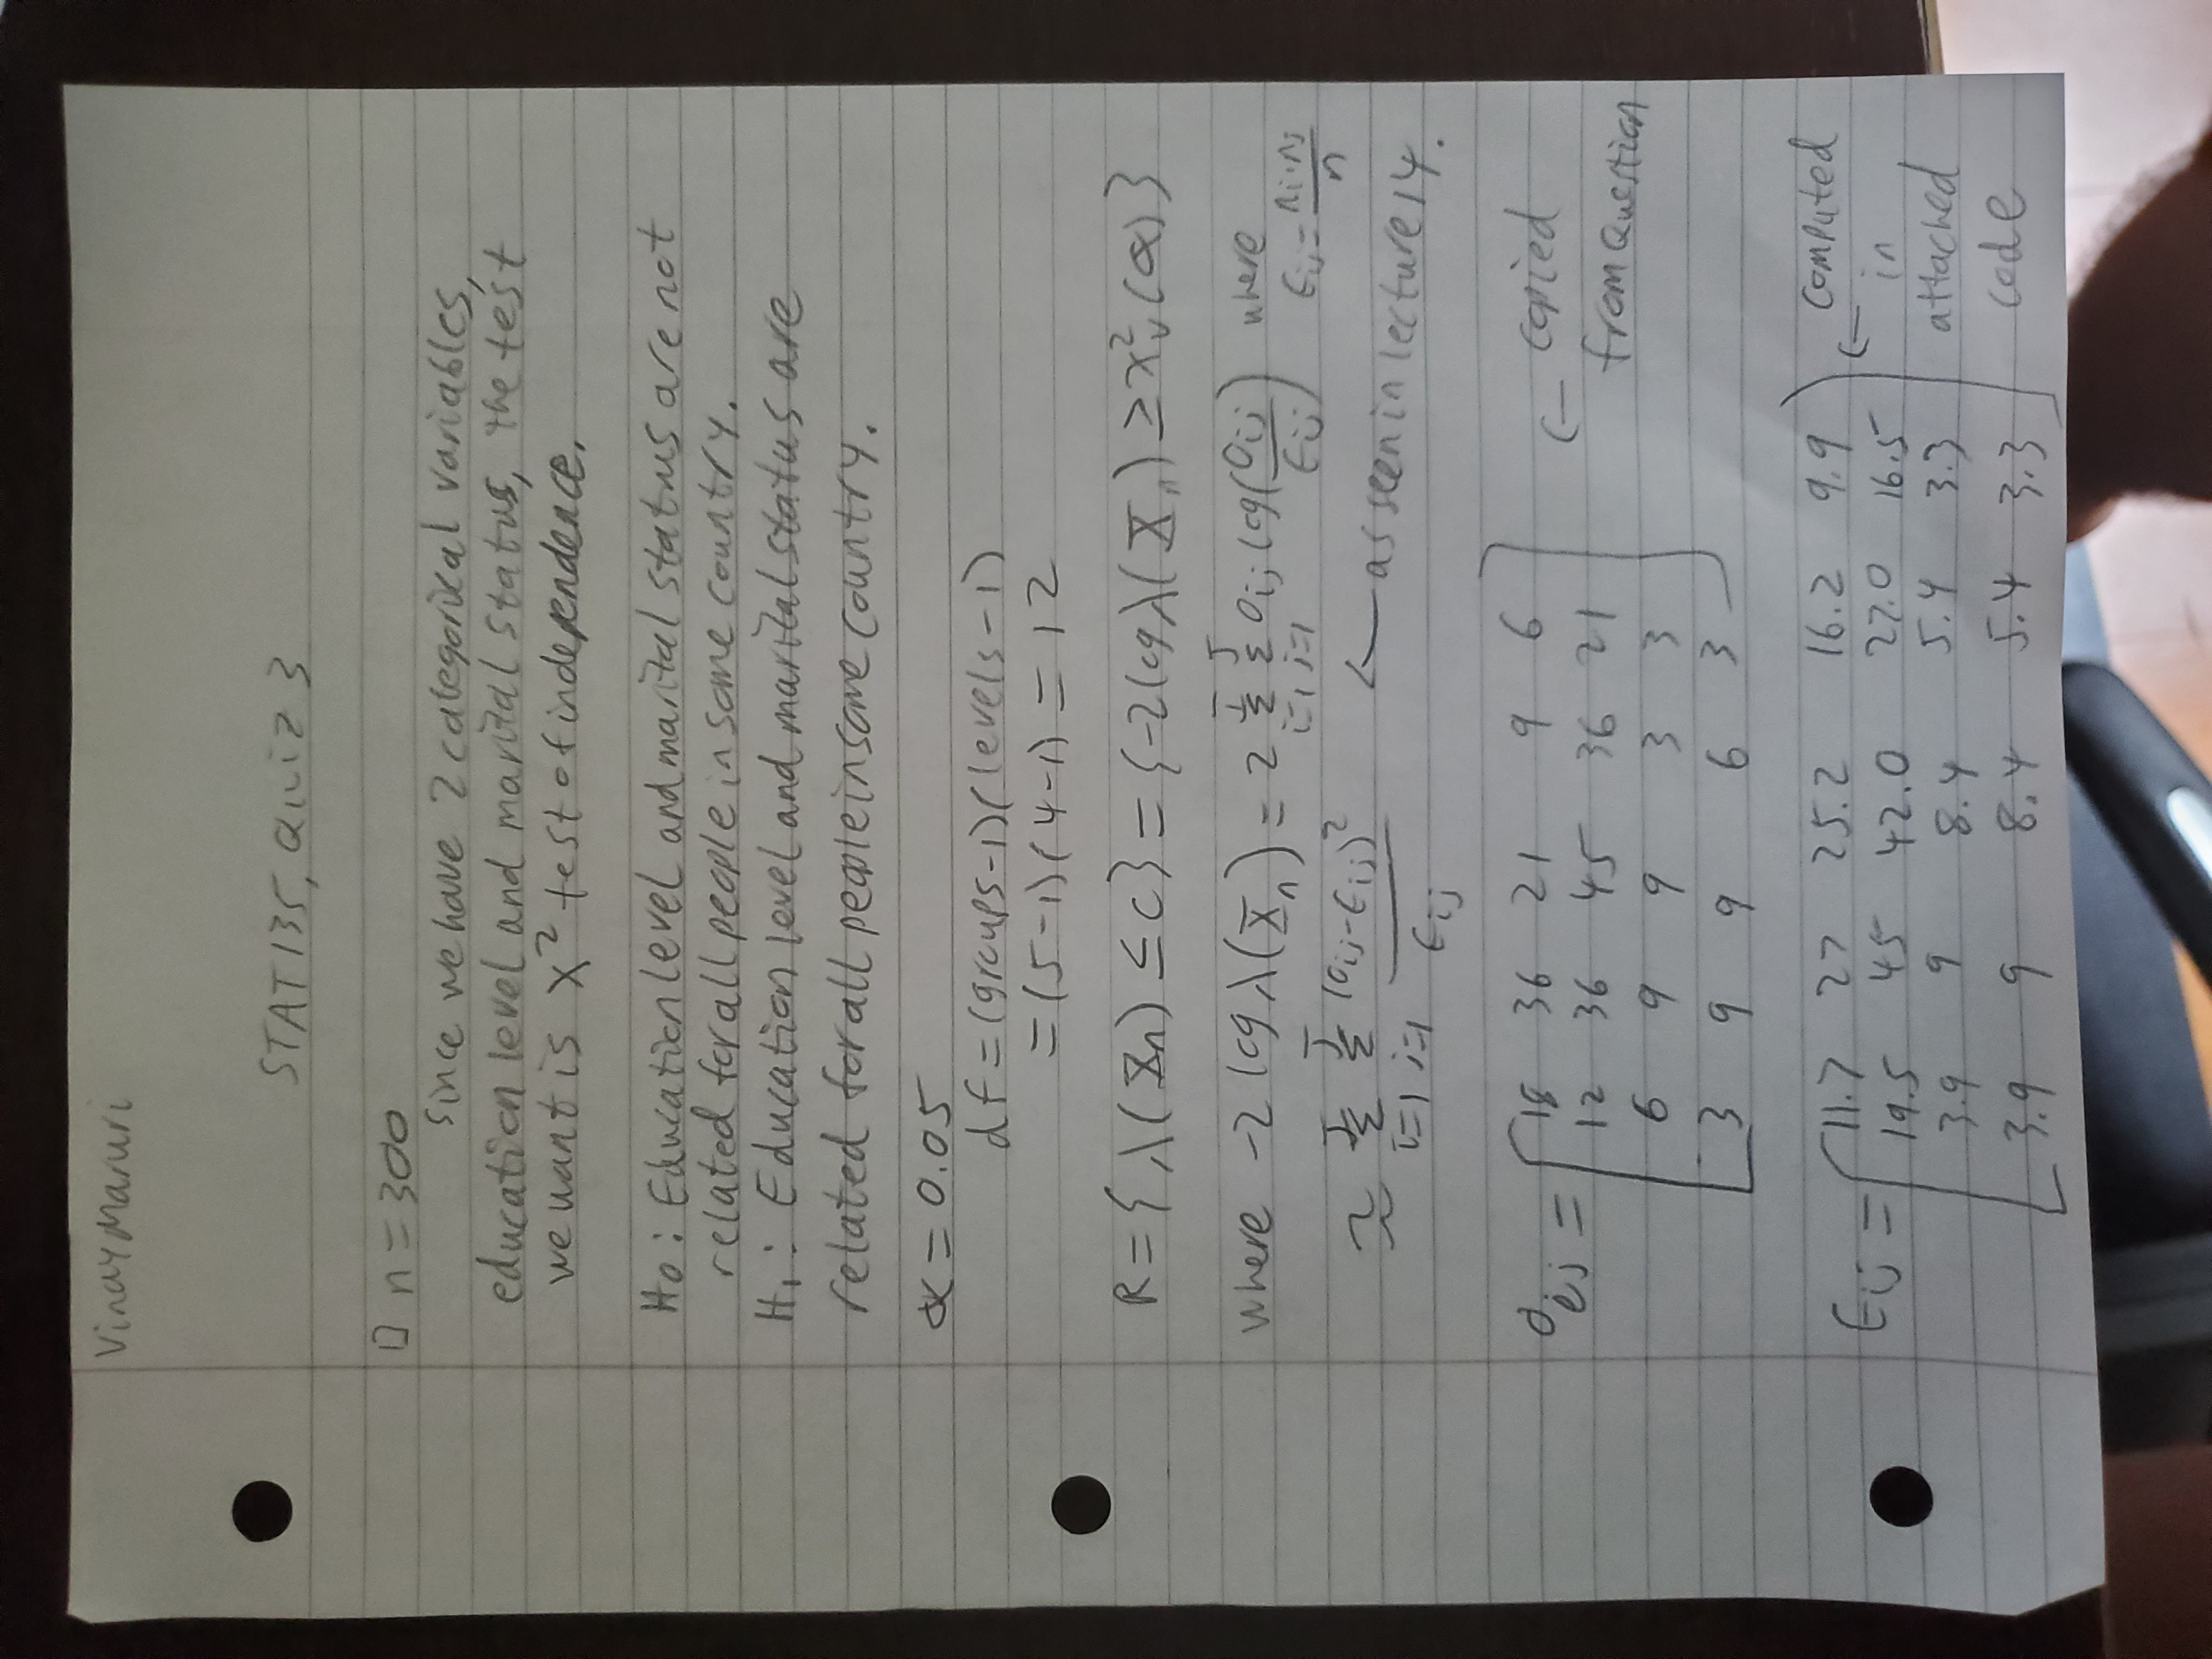 Vinay Maruri
STAT 135, Quiz 3
1) n = 300
since we have 2 categorical variables,
education level and marital status, the test
we want is χ² test of independence.
H₀ : Education level and marital status are not
related for all people in some country.
H₁ : Education level and marital status are
related for all people in some country.
α = 0.05
df = (groups-1)(levels-1)
= (5-1)(4-1) = 12
R = { λ(X̄n) ≤ c } = {-2 log λ(X̄n) ≥ χ²ᵥ(α)}
where -2 log λ(X̄n) = 2 Σ_{i=1}^{I} Σ_{j=1}^{J} Oij log(Oij/Eij) where Eij = ni·nj/n
≈ Σ_{i=1}^{I} Σ_{j=1}^{J} (Oij-Eij)²/Eij ← as seen in lecture 14.
Oij = [18 36 21 9 6 ← copied
12 36 45 36 21 from Question
6 9 9 3 3
3 9 9 6 3]
Eij = [11.7 27 25.2 16.2 9.9 ← computed
19.5 45 42.0 27.0 16.5 in
3.9 9 8.4 5.4 3.3 attached
3.9 9 8.4 5.4 3.3] code